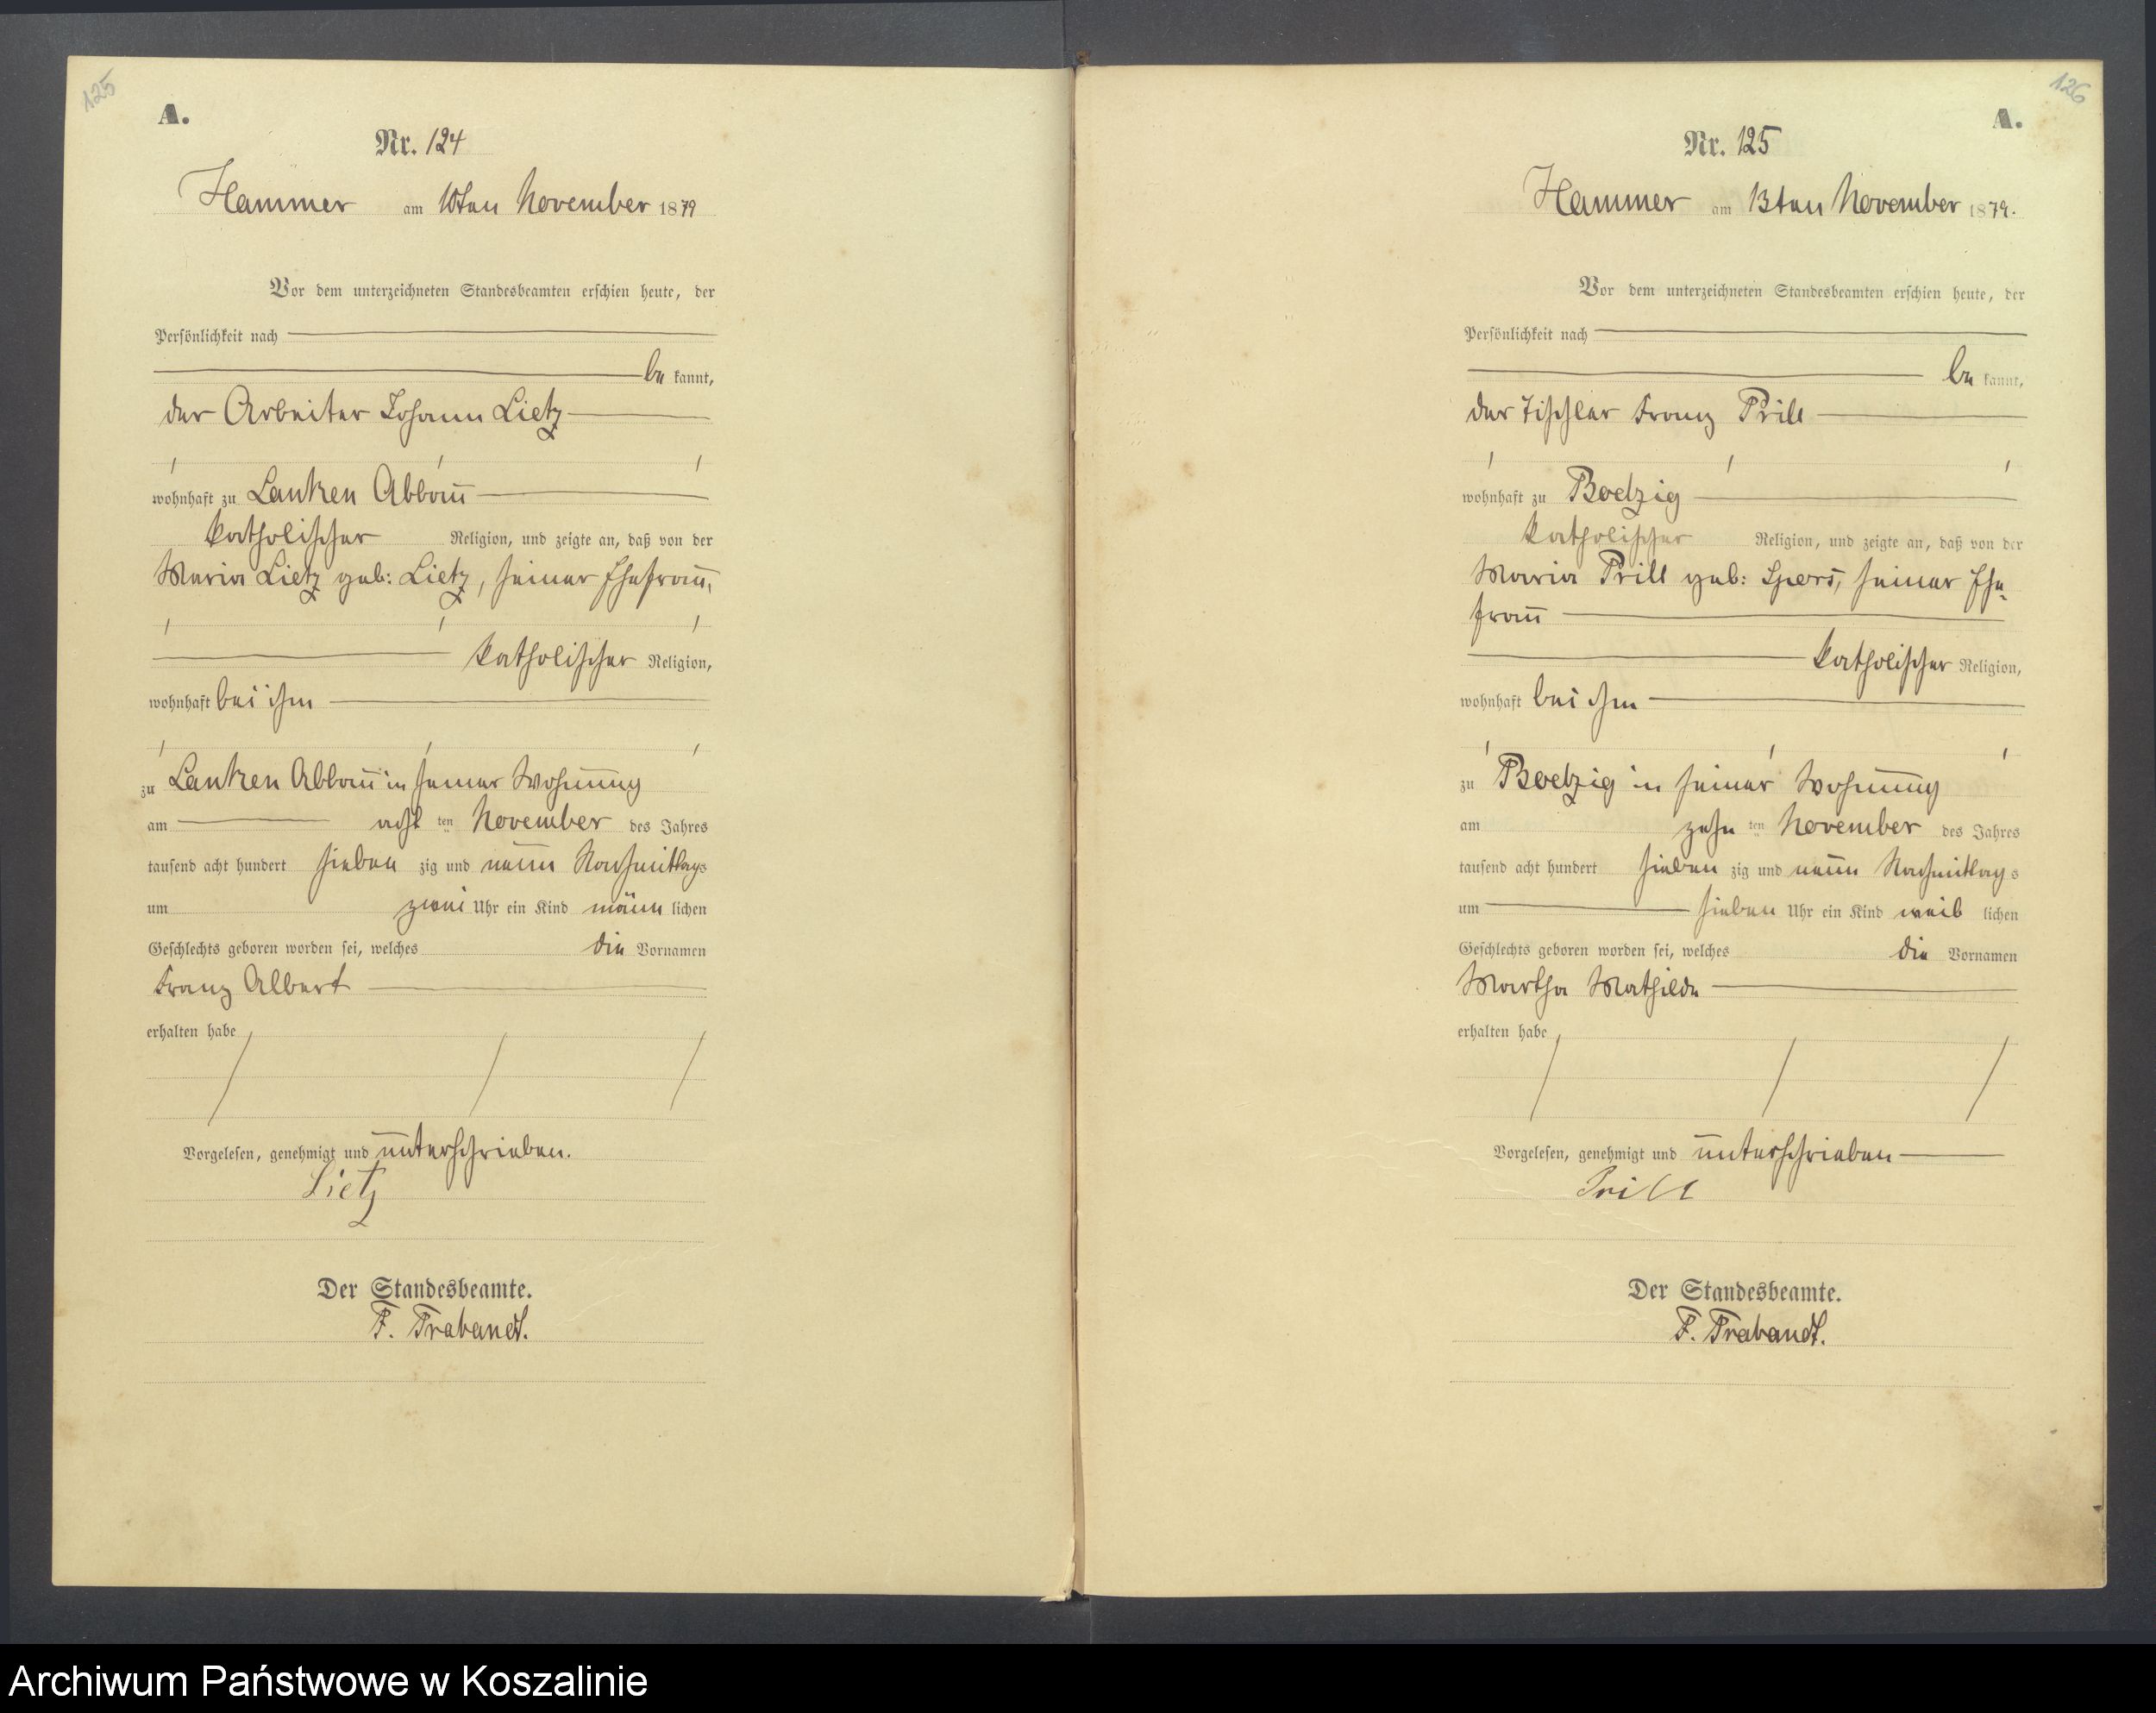 125
A.
Nr. 124
Hammer am 10ten November 1879
Vor dem unterzeichneten Standesbeamten erschien heute, der
Persönlichkeit nach
be kannt,
der Arbeiter Johann Lietz
wohnhaft zu Lanken Abbau
katholischer Religion, und zeigte an, daß von der
Maria Lietz geb: Lietz, seiner Ehefrau,
katholischer Religion,
wohnhaft bei ihm
zu Lanken Abbau in seiner Wohnung
am acht ten November des Jahres
tausend acht hundert sieben zig und neun Nachmittags
um zwei Uhr ein Kind männ lichen
Geschlechts geboren worden sei, welches die Vornamen
Franz Albert
erhalten habe
Vorgelesen, genehmigt und unterschrieben.
Lietz
Der Standesbeamte.
F. Trabandt.
126
A.
Nr. 125
Hammer am 13ten November 1879.
Vor dem unterzeichneten Standesbeamten erschien heute, der
Persönlichkeit nach
be kannt,
der Tischler Franz Prill
wohnhaft zu Boetzig
katholischer Religion, und zeigte an, daß von der
Maria Prill geb: Spors, seiner Ehe-
frau
katholischer Religion,
wohnhaft bei ihm
zu Boetzig in seiner Wohnung
am zehn ten November des Jahres
tausend acht hundert sieben zig und neun Nachmittags
um sieben Uhr ein Kind weib lichen
Geschlechts geboren worden sei, welches die Vornamen
Martha Mathilde
erhalten habe
Vorgelesen, genehmigt und unterschrieben
Prill
Der Standesbeamte.
F. Trabandt.
Archiwum Państwowe w Koszalinie